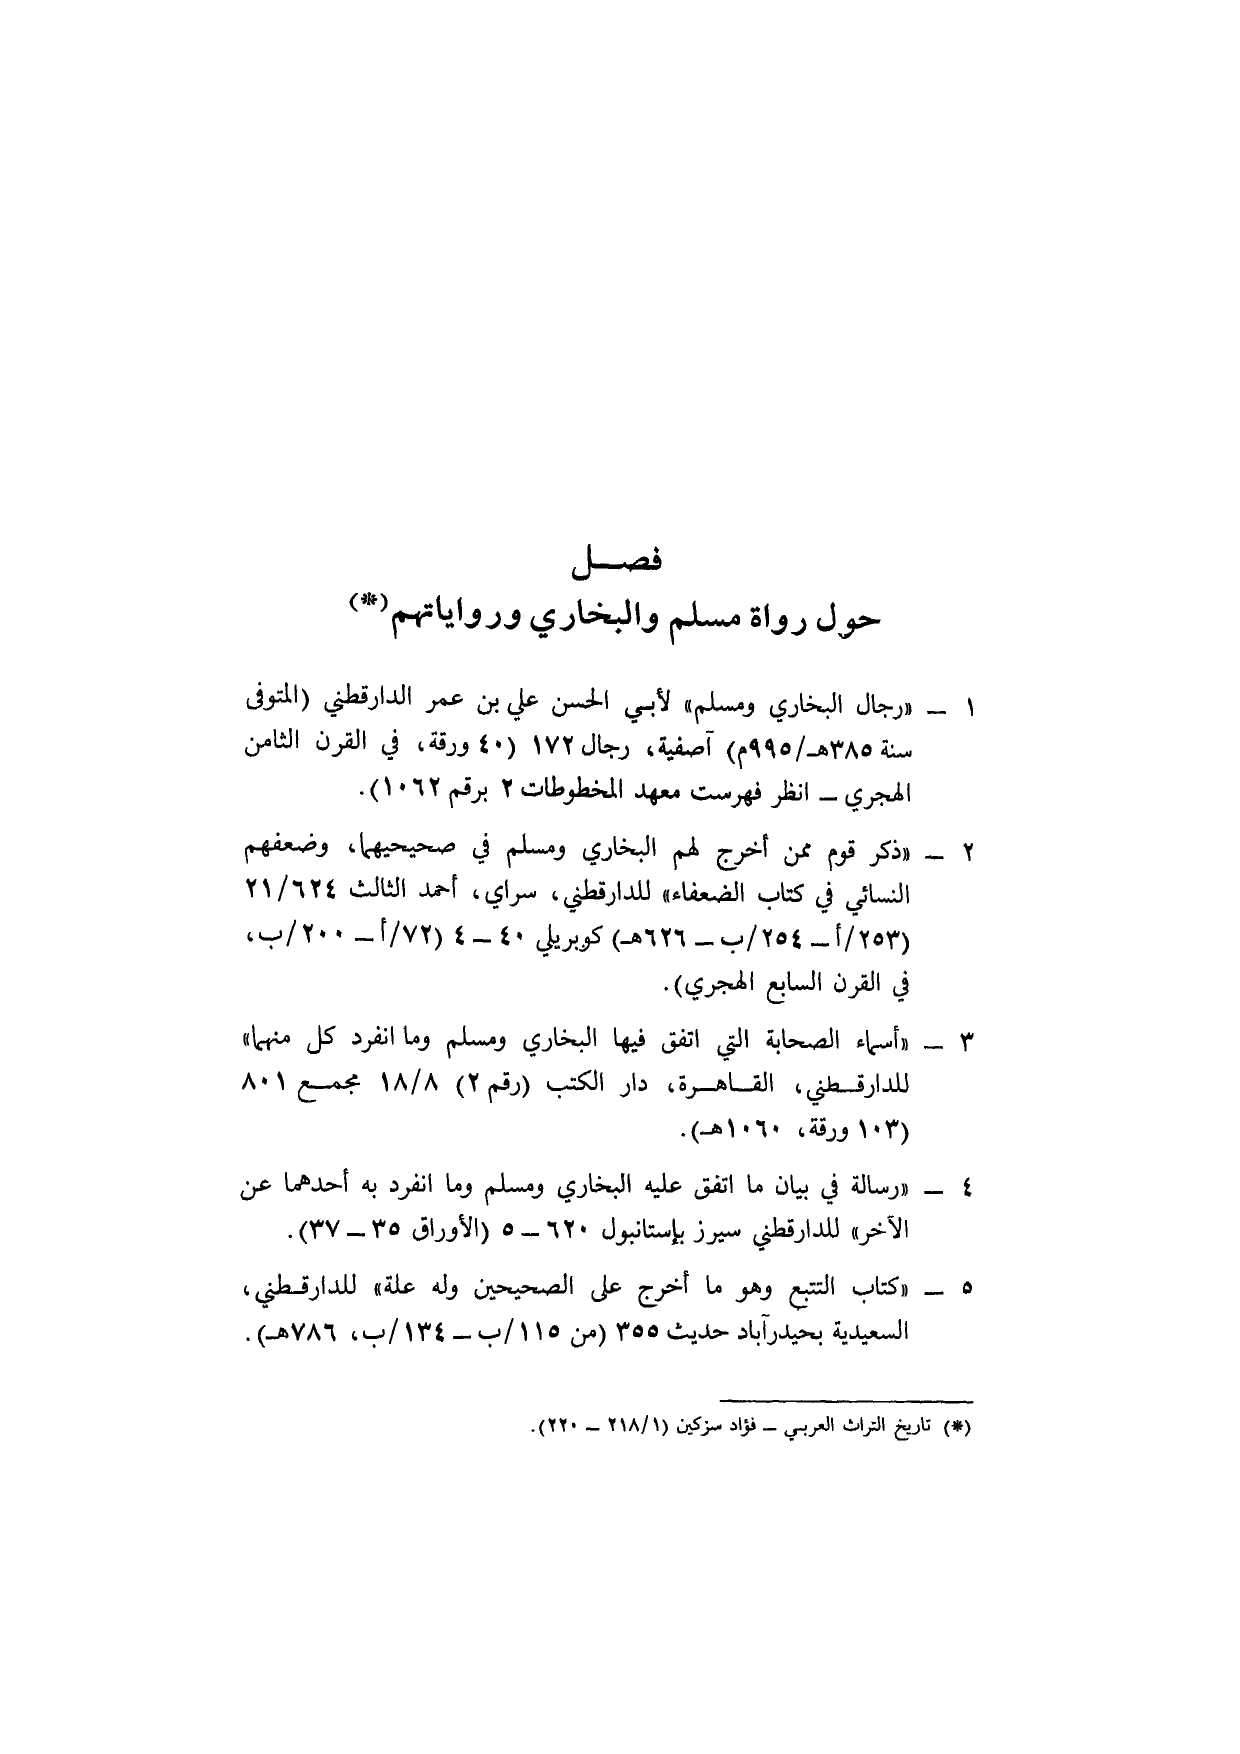 فصـــل
حول رواة مسلم والبخاري ورواياتهم(*)
١ ــ «رجال البخاري ومسلم» لأبي الحسن علي بن عمر الدارقطني (المتوفى
سنة ٣٨٥هـ/٩٩٥م) آصفية، رجال ١٧٢ (٤٠ ورقة، في القرن الثامن
الهجري ــ انظر فهرست معهد المخطوطات ٢ برقم ١٠٦٢).
٢ ــ «ذكر قوم ممن أخرج لهم البخاري ومسلم في صحيحيهما، وضعفهم
النسائي في كتاب الضعفاء» للدارقطني، سراي، أحمد الثالث ٢١/٦٢٤
(٢٥٣/أ ــ ٢٥٤/ب ــ ٦٢٦هـ) كوبريلي ٤٠ ــ ٤ (٧٢/أ ــ ٢٠٠/ب،
في القرن السابع الهجري).
٣ ــ «أسماء الصحابة التي اتفق فيها البخاري ومسلم وما انفرد كل منهما»
للدارقـطني، القـاهـرة، دار الكتب (رقم ٢) ١٨/٨ مجمـع ٨٠١
(١٠٣ ورقة، ١٠٦٠هـ).
٤ ــ «رسالة في بيان ما اتفق عليه البخاري ومسلم وما انفرد به أحدهما عن
الآخر» للدارقطني سيرز بإستانبول ٦٢٠ ــ ٥ (الأوراق ٣٥ ــ ٣٧).
٥ ــ «كتاب التتبع وهو ما أخرج على الصحيحين وله علة» للدارقـطني،
السعيدية بحيدرآباد حديث ٣٥٥ (من ١١٥/ب ــ ١٣٤/ب، ٧٨٦هـ).
(*) تاريخ التراث العربي ــ فؤاد سزكين (٢١٨/١ ــ ٢٢٠).